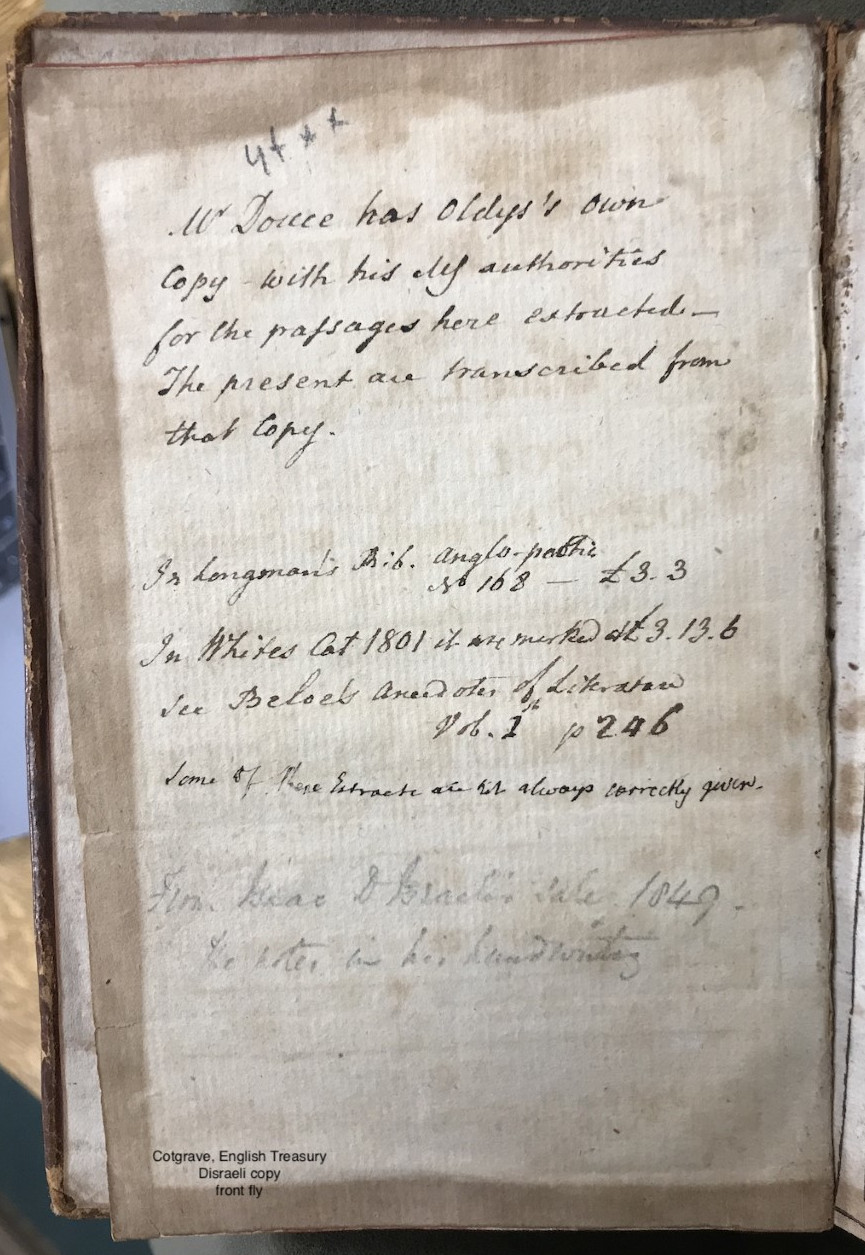 4+ * *
Mr Douce has Oldys's own
Copy - with his MS authorities
for the passages here extracted—
The present are transcribed from
that Copy.
In Longman's Bib. Anglo-poetic
No 168 — £3.3
In Whites Cat 1801 it are marked at £3.13.6
See Beloe's Anecdotes of Literature
Vol. 1st p 246
Some of these Extracts are not always correctly given.
From Isaac D'Israeli's sale 1849.
The notes in his handwriting
Cotgrave, English Treasury
Disraeli copy
front fly